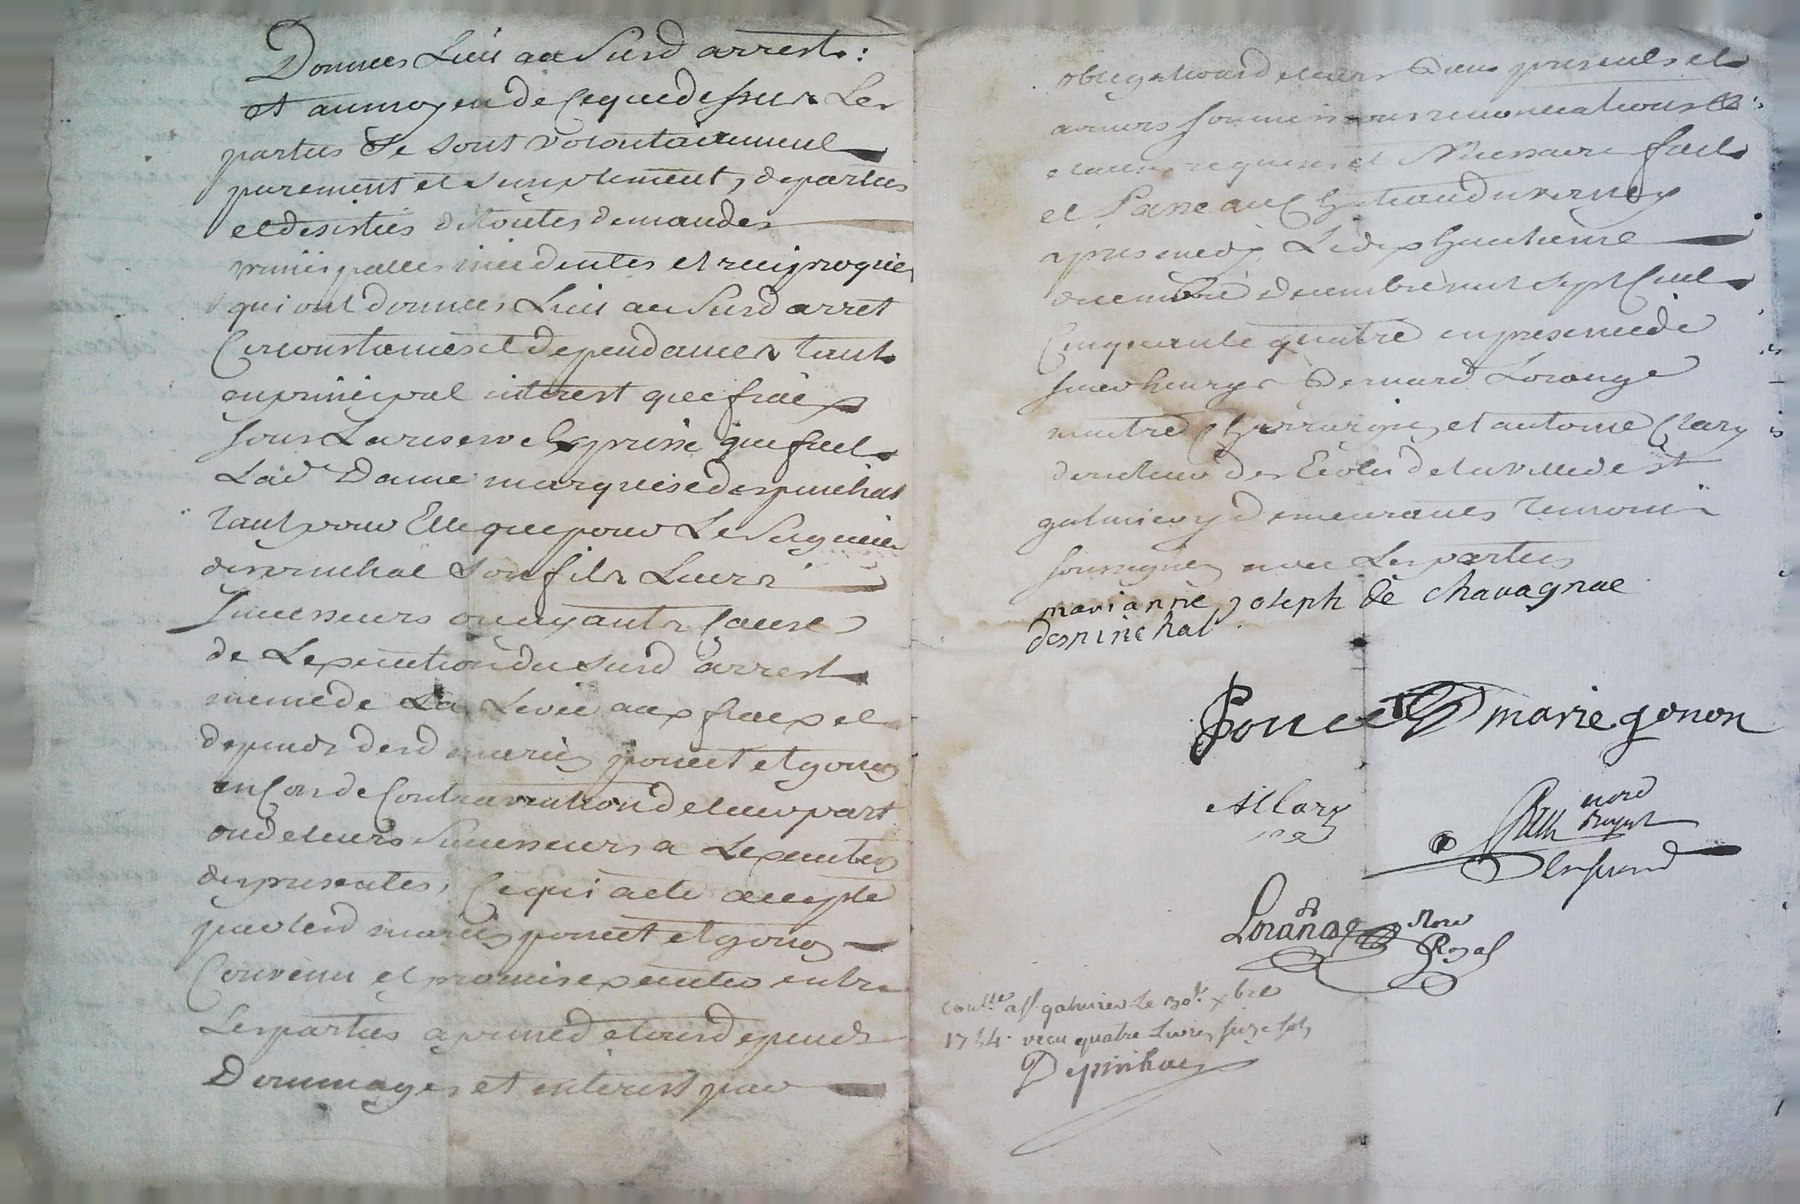 Donnees Lieu au Susd arrest :
et au moyen de ce que dessus Les
parties se sont volontairement
purement et simplement, departies
et desisties de toutes demandes
principalles incidentes et reciproques
qui ont donnees Lieu au Susd arret
Circonstances et dependances tant
en principal interest que fraix
sous La reserve expresse que fait
Lad Dame marquise despinchal
tant pour Elle que pour Le Seigneur
despinchal Son fils Leurs
successeurs ou ayants cause
de Lexecution du susd arrest
meme de La Levée aux fraix et
depends desd mariés poncet et gonon
en Cas de Contravention de leur part
ou de leurs Successeurs a Lexecution
des presentes, Ce qui a ete accepte
par lesd mariés poncet et gonon
Convenu et promis executer entre
Les parties a peine de tous depends
Dommages et interest par
obligations de leurs Biens presents et
avenirs soumissions renonciations &
clauses requises et Necessaire fait
et Passe au Chateau du verney
apres midy Le dix huitieme
decembre mil sept Cent
Cinquante quatre en presence de
sieur henry Bernard Lorange
maitre Chirurgien et antoine Clary
directeur des Ecoles de la ville de St
galmier y demeurants temoins
soussignes avec Les parties
marianne joseph de chavagnac
despinchal
Poncet marie gonon
Allary
nore
Royal
Lorange Nore
Royal
Conlle a St galmier le 30e xbre
1754. recu quatre Livres seize sols
Depinhac